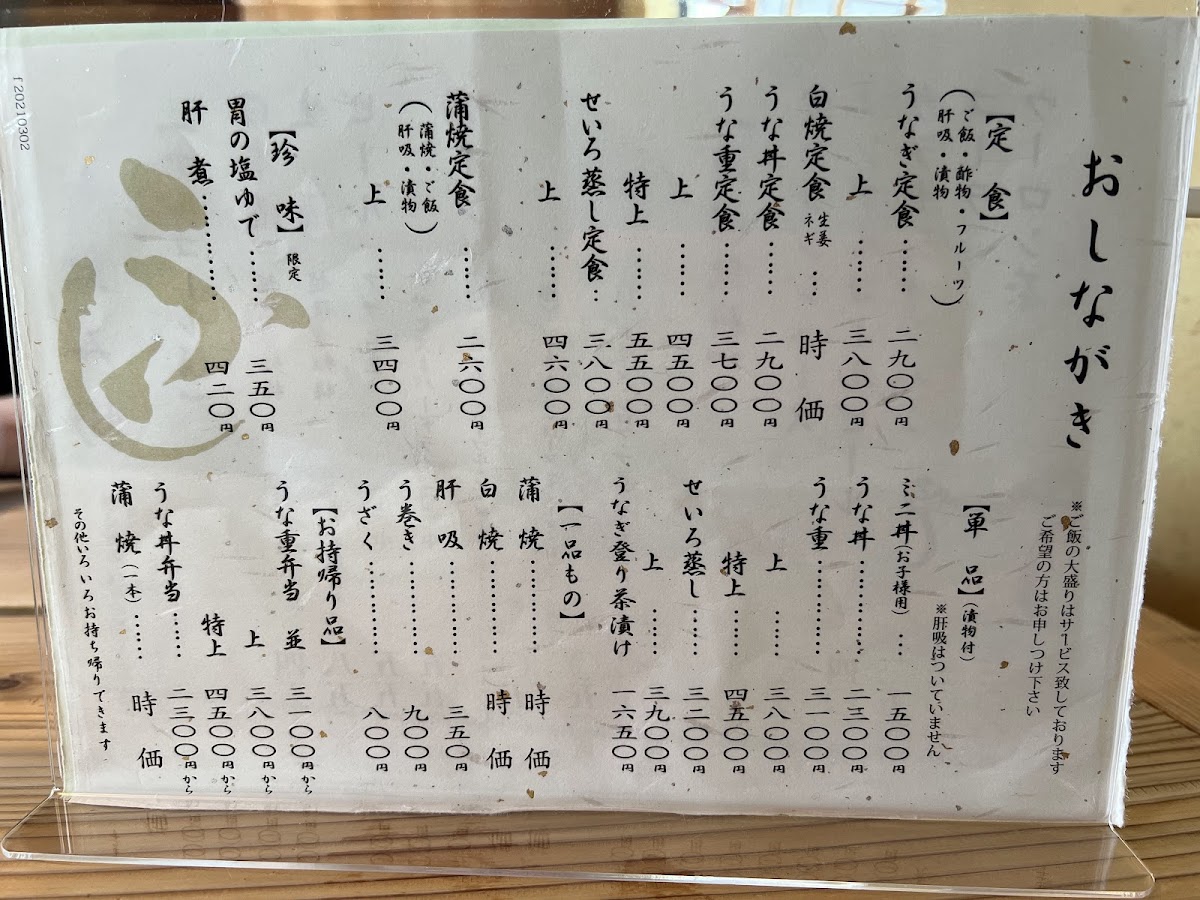 おしながき
※ご飯の大盛りはサービス致しております
ご希望の方はお申しつけ下さい
【定食】
（ご飯・酢物・フルーツ
肝吸・漬物）
うなぎ定食……二九〇〇円
上……三八〇〇円
白焼定食 生姜 ネギ…時価
うな丼定食……二九〇〇円
うな重定食……三七〇〇円
上……四五〇〇円
特上……五五〇〇円
せいろ蒸し定食…三八〇〇円
上……四六〇〇円
蒲焼定食……二六〇〇円
（蒲焼・ご飯
肝吸・漬物）
上……三四〇〇円
【珍味】限定
胃の塩ゆで……三五〇円
肝煮………四二〇円
【単品】（漬物付）
※肝吸はついていません
ミニ丼（お子様用）…一五〇〇円
うな丼………二三〇〇円
うな重………三一〇〇円
上………三八〇〇円
特上……四五〇〇円
せいろ蒸し……三二〇〇円
上……三九〇〇円
うなぎ登り茶漬け 一六五〇円
【一品もの】
蒲焼………時価
白焼………時価
肝吸………三五〇円
う巻き………九〇〇円
うざく………八〇〇円
【お持帰り品】
うな重弁当 並 三一〇〇円から
上 三八〇〇円から
特上 四五〇〇円から
うな丼弁当……二三〇〇円から
蒲焼（一本）……時価
その他いろいろお持ち帰りできます
f 20210302